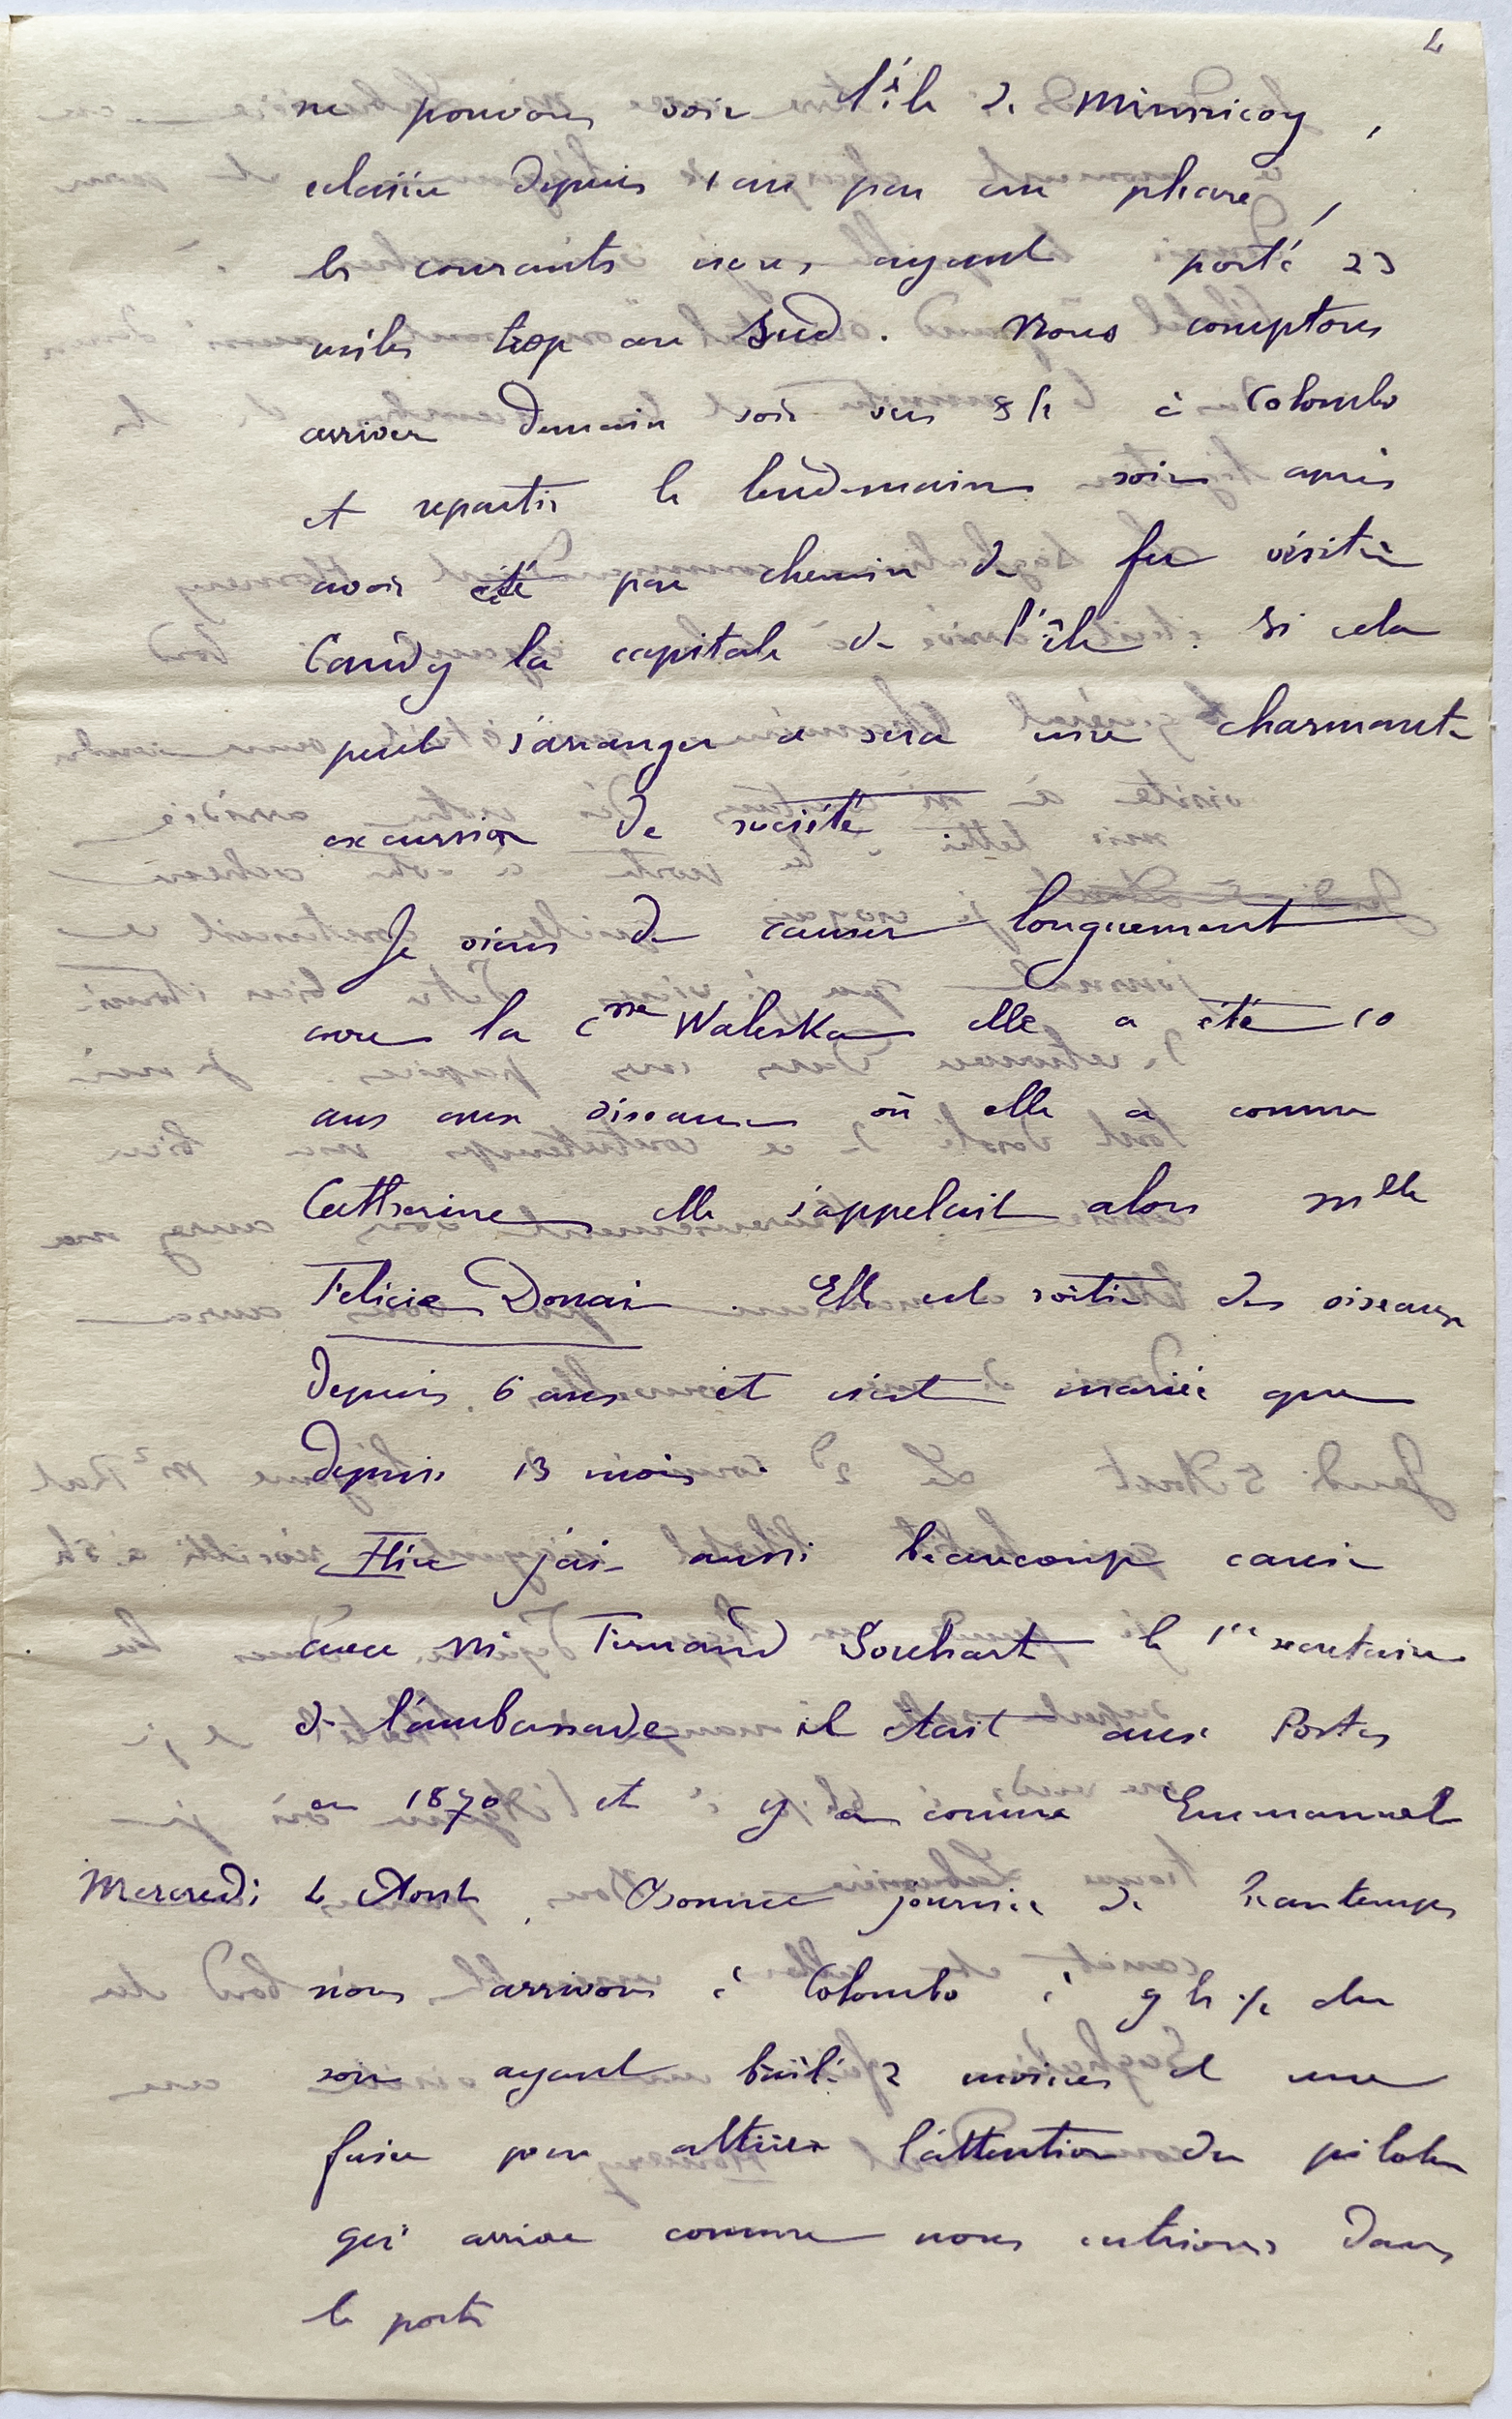 4
ne pouvons voir l'île de Minnicoy,
eclairée depuis 1 an par un phare,
les courants nous ayant porté 23
milles trop au Sud. Nous comptons
arriver demain soir vers 8 h à Colombo
et repartir le lendemain soir après
avoir été par chemin de fer visiter
Candy la capitale de l'île. Si cela
peut s'arranger ce sera une charmante
excursion de société
Je viens de causer longuement
avec la Csse Waleska elle a été 10
ans aux oiseaux où elle a connu
Catherine, elle s'appelait alors Mlle
Felicie Douai. Elle est sortie des oiseaux
depuis 6 ans et n'est mariée que
depuis 13 mois.
Hier j'ai aussi beaucoup causé
avec M Fernand Souhart le 1er secretaire
de l'ambassade il était aux Postes
en 1870 et y a connu Emmanuel
Mercredi 4 Aout, Bonne journée de Beautemps
nous arrivons à Colombo à 9 h ½ du
soir ayant brûlé 2 amorces et une
fusée pour attirer l'attention du pilote
qui arrive comme nous entrions dans
le port